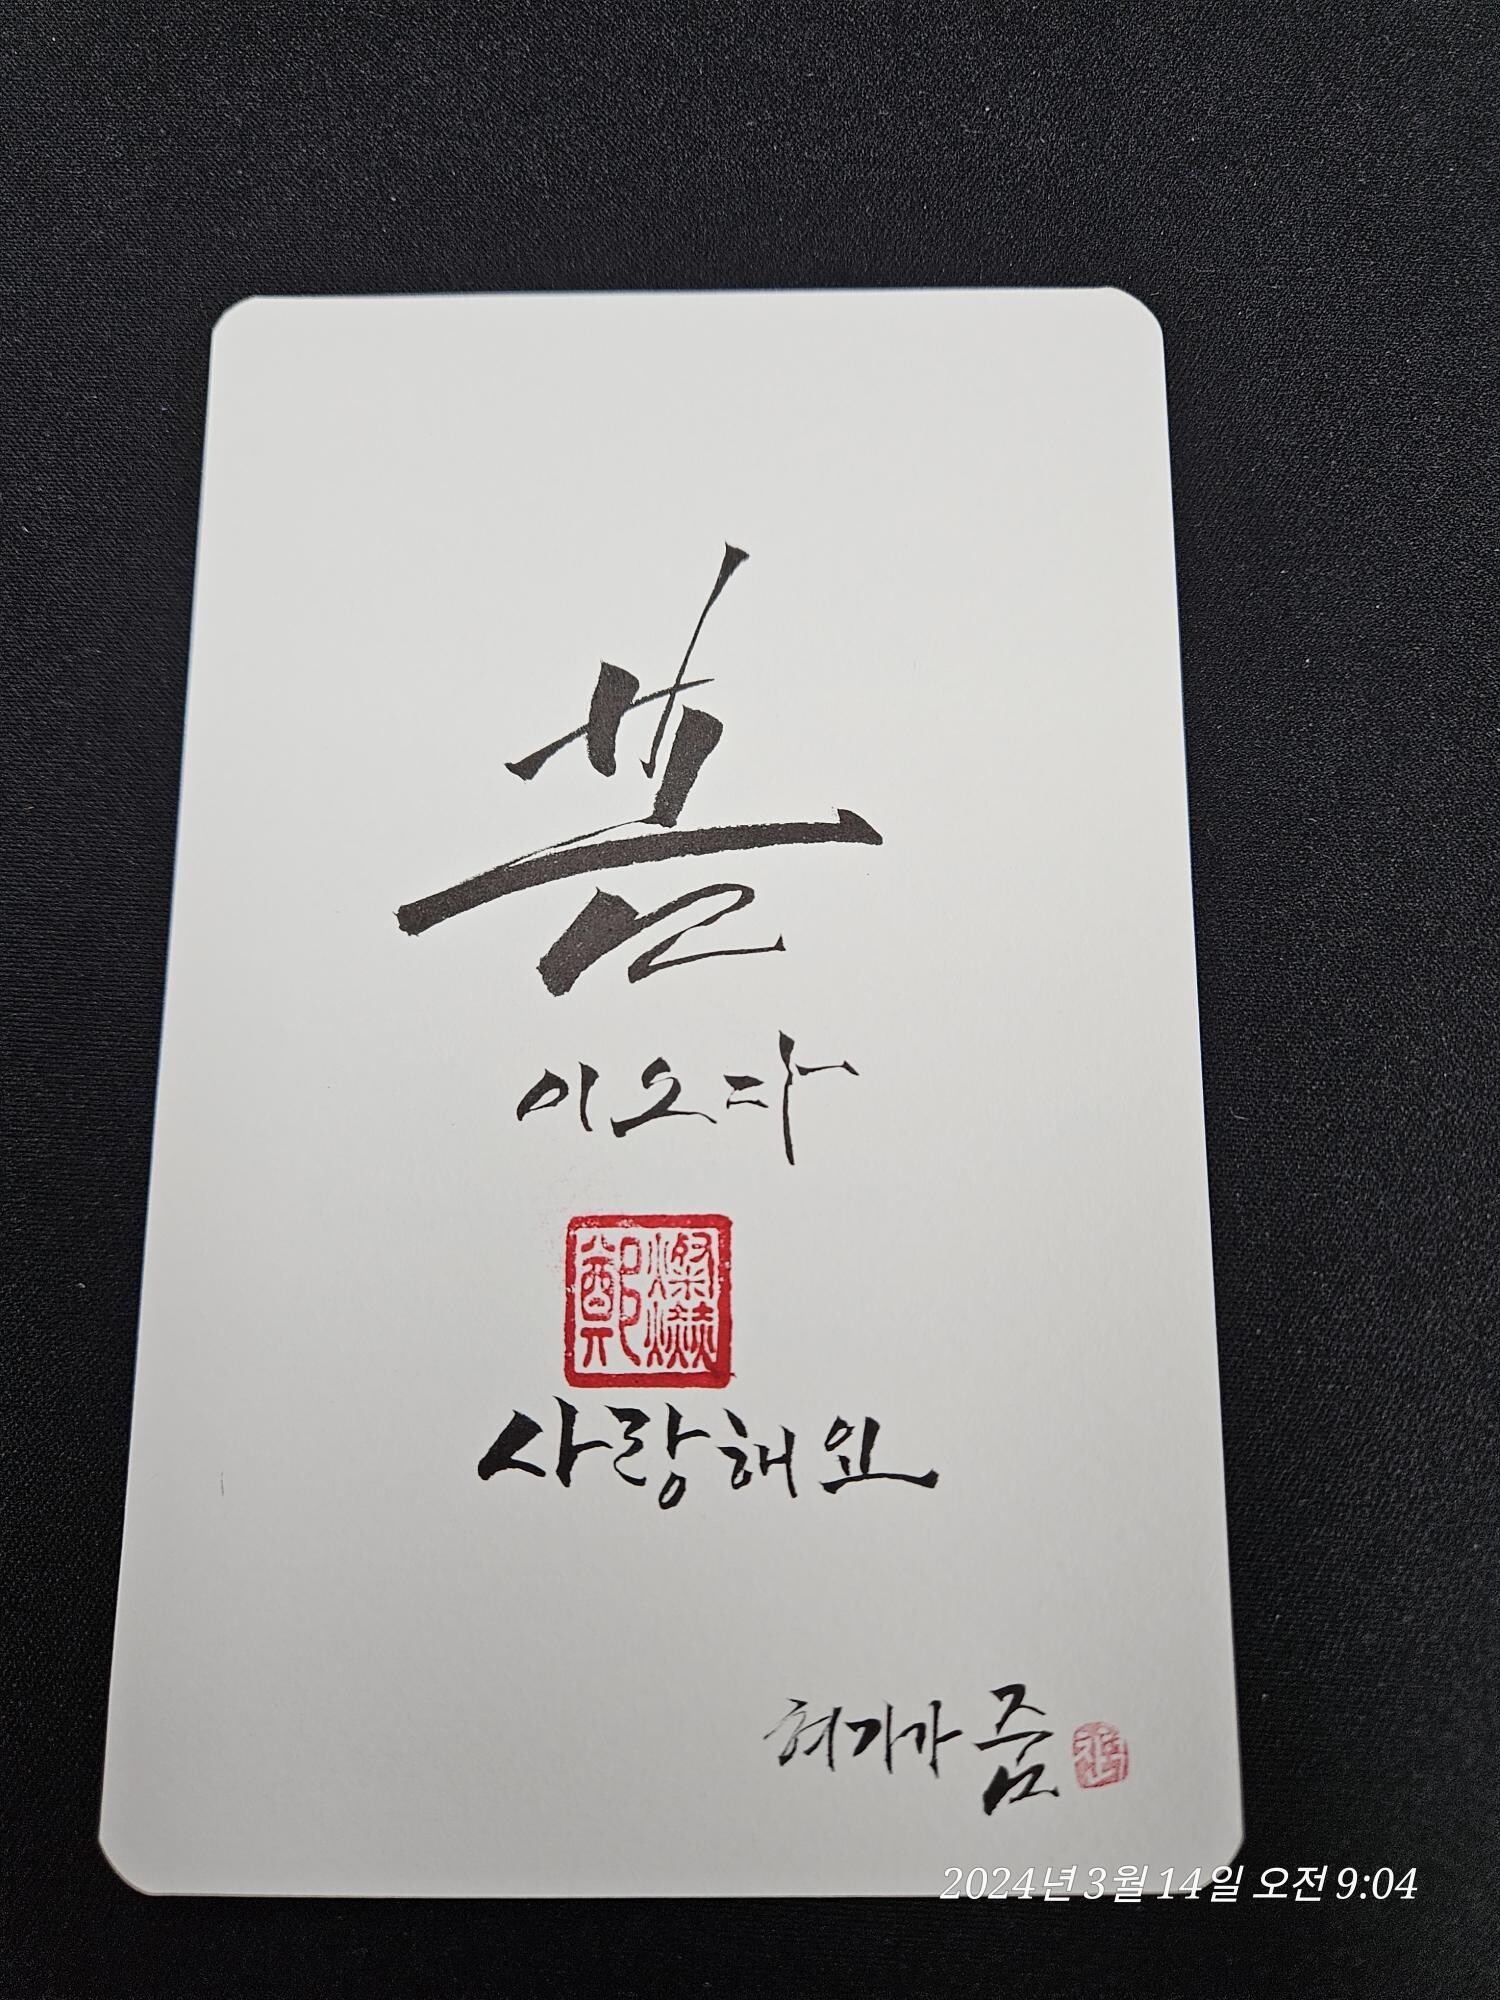 봄
이오다
사랑해요
혀기가 줌
2024년 3월 14일 오전 9:04